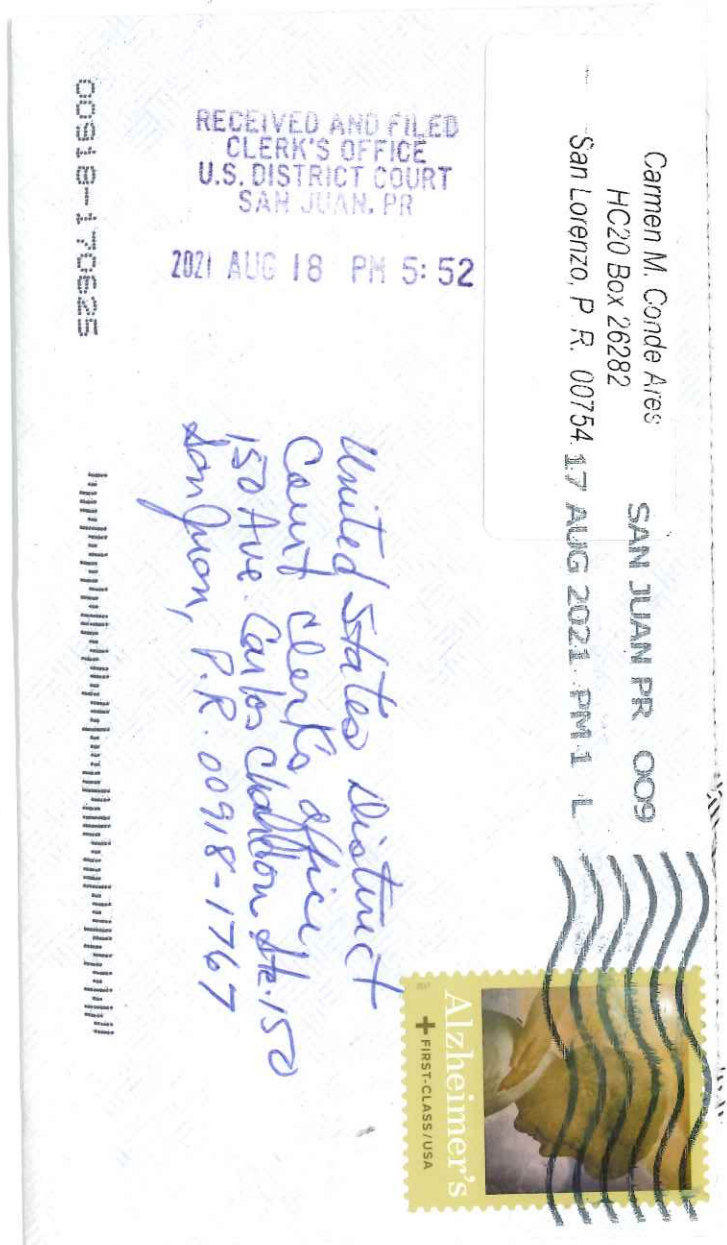 Carmen M. Conde Ares
HC20 Box 26282
San Lorenzo, P. R. 00754
SAN JUAN PR 009
17 AUG 2021 PM 1 L
Alzheimer's
+ FIRST-CLASS/USA
RECEIVED AND FILED
CLERK'S OFFICE
U.S. DISTRICT COURT
SAN JUAN, PR
2021 AUG 18 PM 5:52
United States District
Court Clerks office
150 Ave. Carlos Chardon Ste. 150
San Juan, P.R. 00918-1767
00918-170625